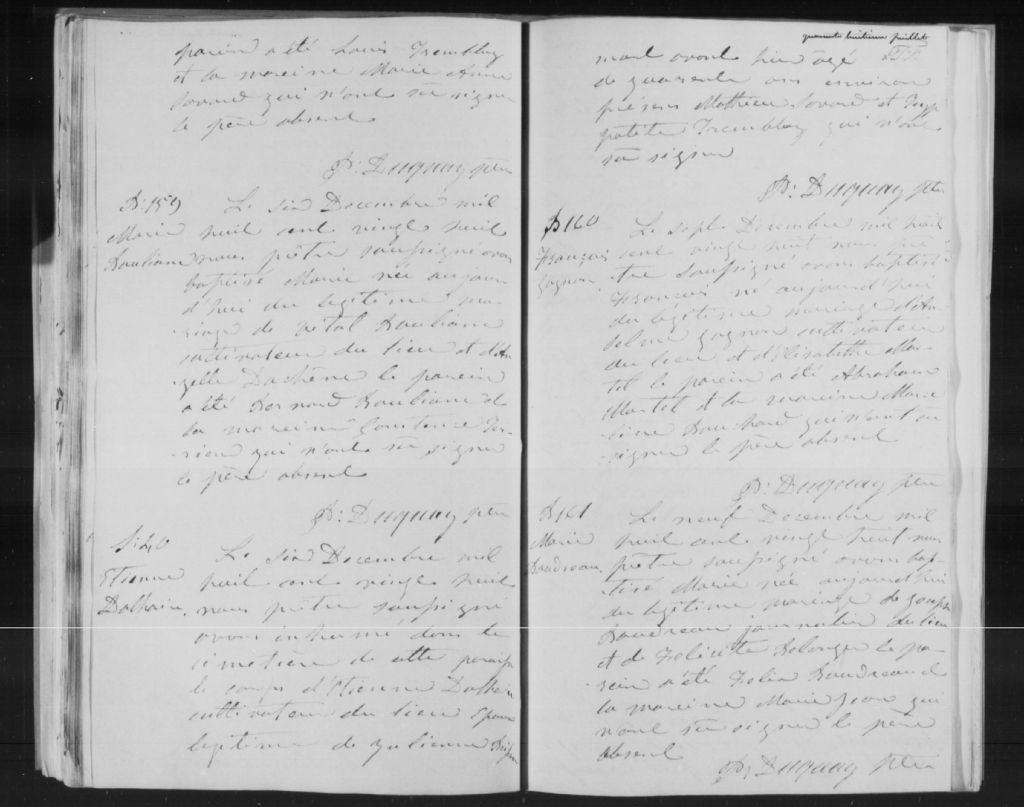 parein a été Louis Tremblay
et la mareine Marie Anne
Savard qui n'ont su signer
le père absent
P: Duguay ptre
B: 159
Marie
Le six Decembre mil
huit cent vingt huit
nous prêtre soussigné avons
baptisé Marie née aujour
d'hui du légitime ma-
riage de Vital
cultivateur du lieu et d'An
gelle Duchêne le parein
a été Bernard et
la mareine Constance
qui n'ont su signer
le père absent
P: Duguay ptre
S: 40
Etienne
Dalhain
Le six Decembre mil
huit cent vingt huit
nous prêtre soussigné
avons inhumé dans le
cimetière de cette paroisse
le corps d'Etienne Dalhain
cultivateur du lieu Epoux
legitime de Julienne
quarante huitieme feuillet
mort avant hier agé
de quarante ans environ
présens Mathieu Savard et Hyp
polite Tremblay qui n'ont
su signer
P: Duguay ptre
B 160
François
Gagnon
Le sept Decembre mil huit
cent vingt huit nous prê
tre soussigné avons baptisé
François né aujourd'hui
du légitime mariage d'An
selme Gagnon cultivateur
du lieu et d'Elisabethe Mar-
tel le parein a été Abraham
Martel et la mareine Marie
Bouchard qui n'ont su
signer le père absent
P: Duguay ptre
B 161
Marie
Boudreau
Le neuf Decembre mil
huit cent vingt huit nous
prêtre soussigné avons bap-
tisé Marie née aujourd'hui
du légitime mariage de Joseph
Boudreau journalier du lieu
et de Felicite Belanger le pa-
rein a été Felix Boudreau et
la mareine Marie Jean qui
n'ont su signer le père
absent
P: Duguay ptre